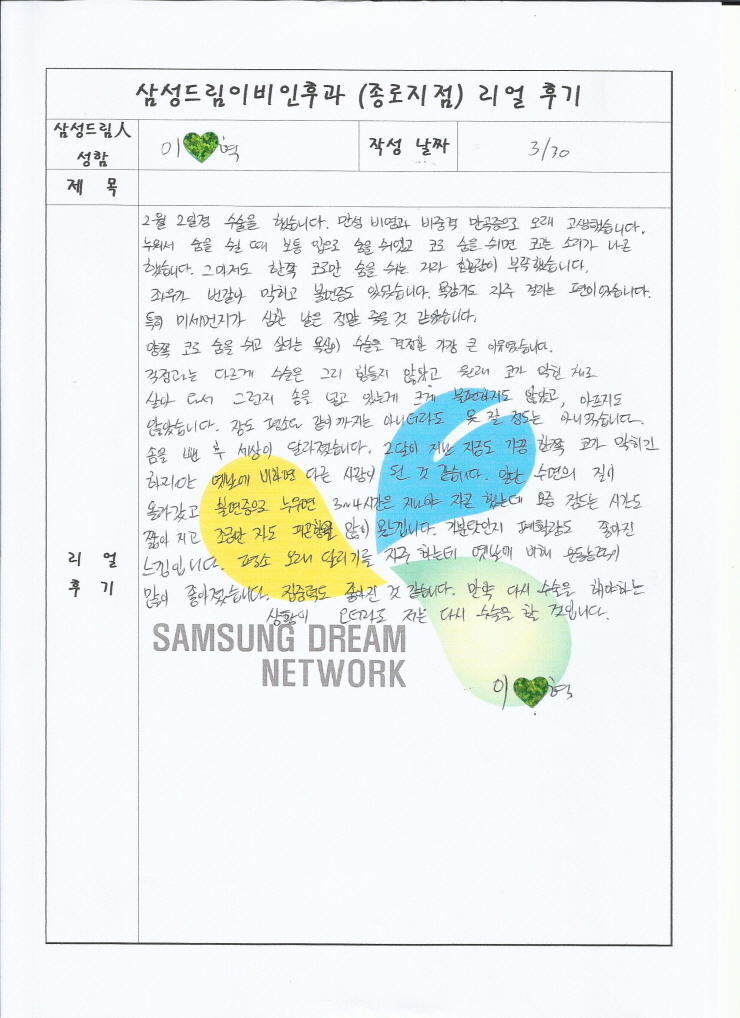 삼성드림이비인후과 (종로지점) 리얼 후기
삼성드림人
성함
이 혁
작성 날짜
3/30
제 목
2월 2일경 수술을 했습니다. 만성 비염과 비중격 만곡증으로 오래 고생했습니다.
누워서 숨을 쉴 때 보통 입으로 숨을 쉬었고 코로 숨을 쉬면 코고는 소리가 나곤
했습니다. 그마저도 한쪽 코로만 숨을 쉬는 지라 호흡량이 부족했습니다.
좌우가 번갈아 막히고 불면증도 있었습니다. 목감기도 자주 걸리는 편이었습니다.
특히 미세먼지가 심한 날은 정말 죽을 것 같았습니다.
양쪽 코로 숨을 쉬고 싶다는 욕심이 수술을 결정한 가장 큰 이유였습니다.
걱정과는 다르게 수술은 그리 힘들지 않았고 원래 코가 막힌 채로
살아 와서 그런지 솜을 넣고 있는게 크게 불편하지도 않았고, 아프지도
않았습니다. 잠도 평소와 같이 까지는 아니더라도 못 잘 정도는 아니었습니다.
솜을 뺀 후 세상이 달라졌습니다. 2달이 지난 지금도 가끔 한쪽 코가 막히긴
하지만 옛날에 비하면 다른 사람이 된 것 같습니다. 일단 수면의 질이
올라갔고 불면증으로 누우면 3~4시간은 지나야 자곤 했는데 요즘 잠드는 시간도
짧아 지고 조금만 자도 피곤함을 많이 못느낍니다. 기분탓인지 폐활량도 좋아진
느낌입니다. 평소 오래 달리기를 자주 하는데 옛날에 비해 운동능력이
많이 좋아졌습니다. 집중력도 좋아진 것 같습니다. 만약 다시 수술을 해야하는
상황이 오더라도 저는 다시 수술을 할 것입니다.
리 얼
후 기
SAMSUNG DREAM
NETWORK
이 혁